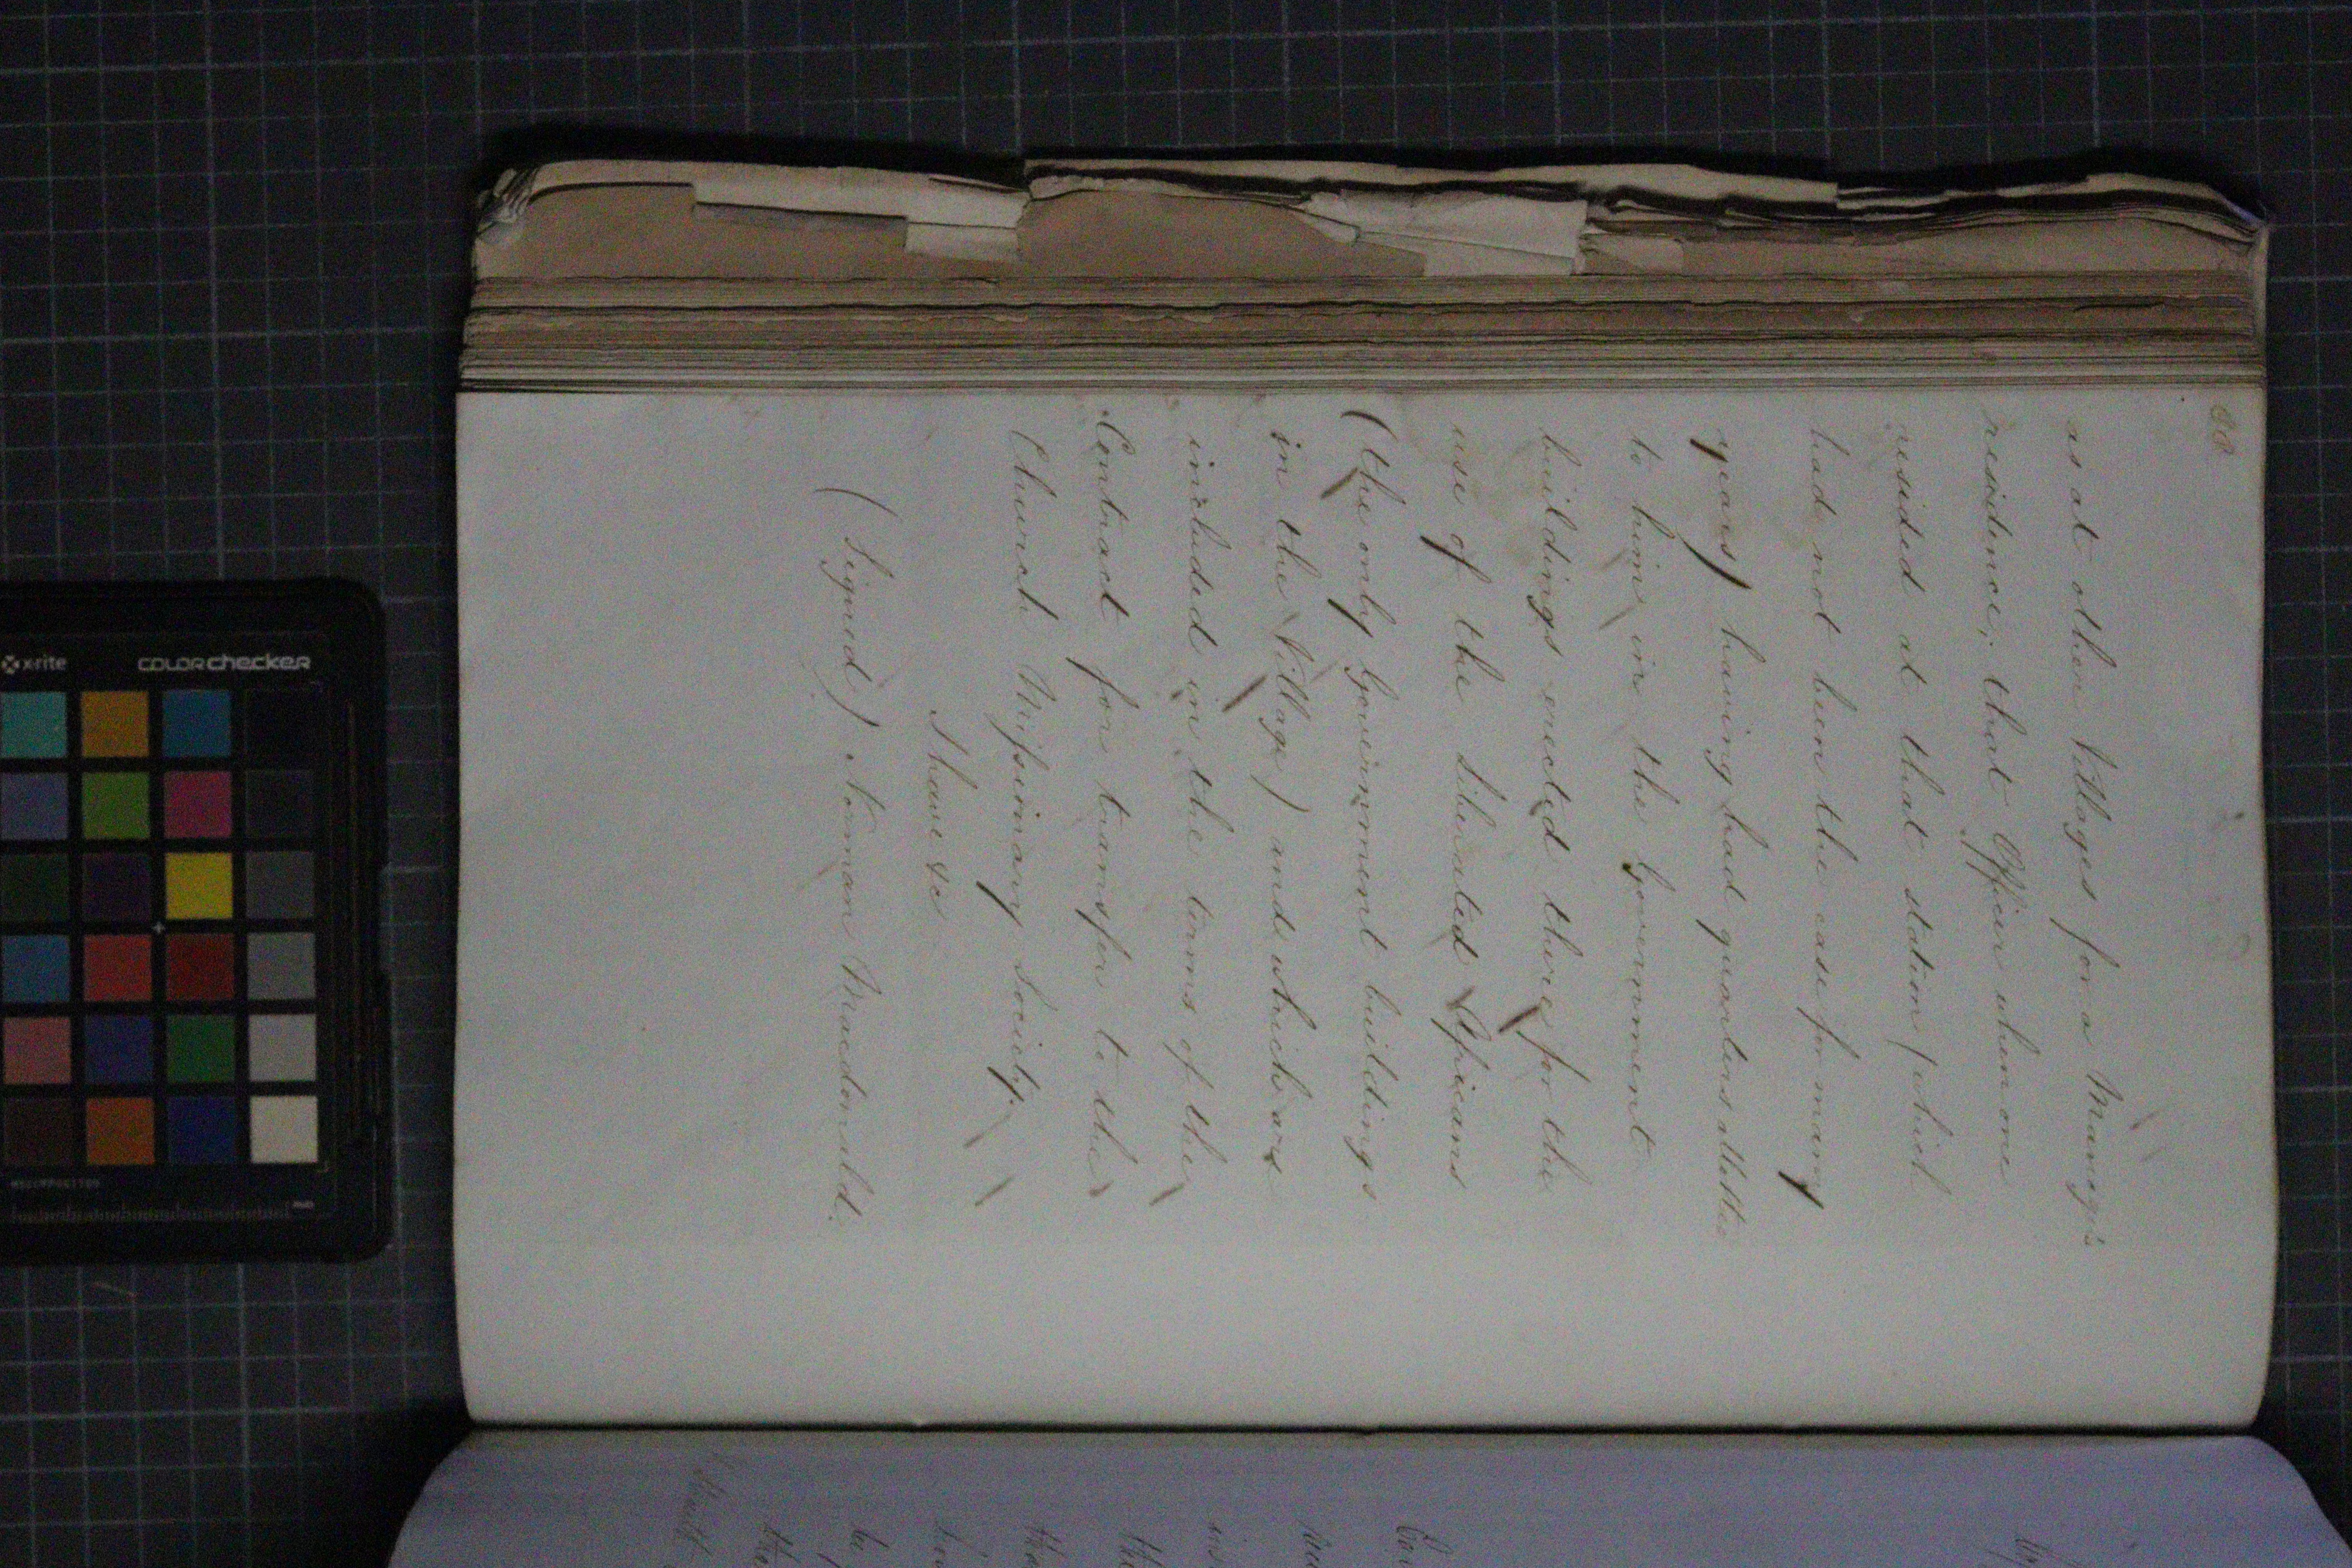 88
as at other Villages for a Manag's
residence; that Officer when one
resided at that station (which
had not been the case for many
years) having had quarters allotted
to him in the Government
buildings erected there for the
use of the Liberated Africans
(the only Government buildings
in the Village) and which are
included in the terms of the
Contract for transfer to the
Church Missionary Society.
I have &c
(Signed) Norman Macdonald.
x-rite
colorchecker